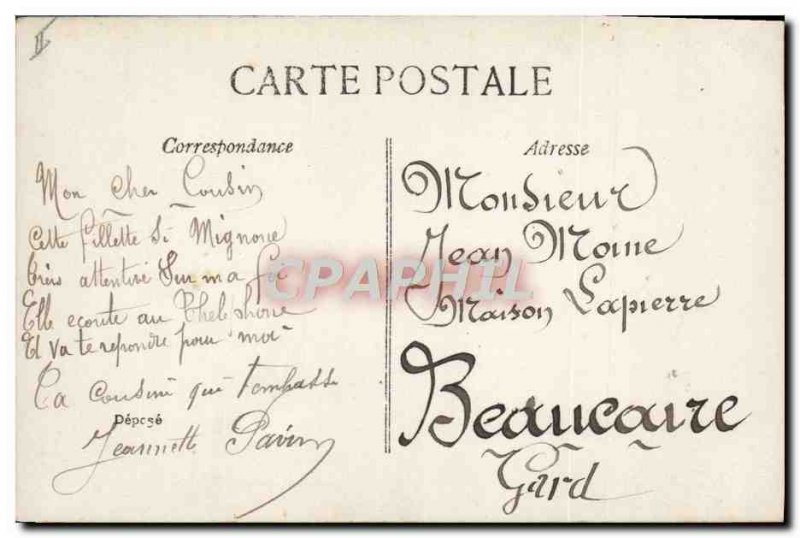 II
CARTE POSTALE
Correspondance
Mon cher Cousin
Cette fillette si Mignone
très attentive Sur ma foi
Elle ecoute au Thelephone
Et va te repondre pour moi
Ta cousine qui t'embasse
Déposé
Jeannette Pavin
Adresse
Monsieur
Jean Moine
Maison Lapierre
Beaucaire
Gard
CPAPHIL